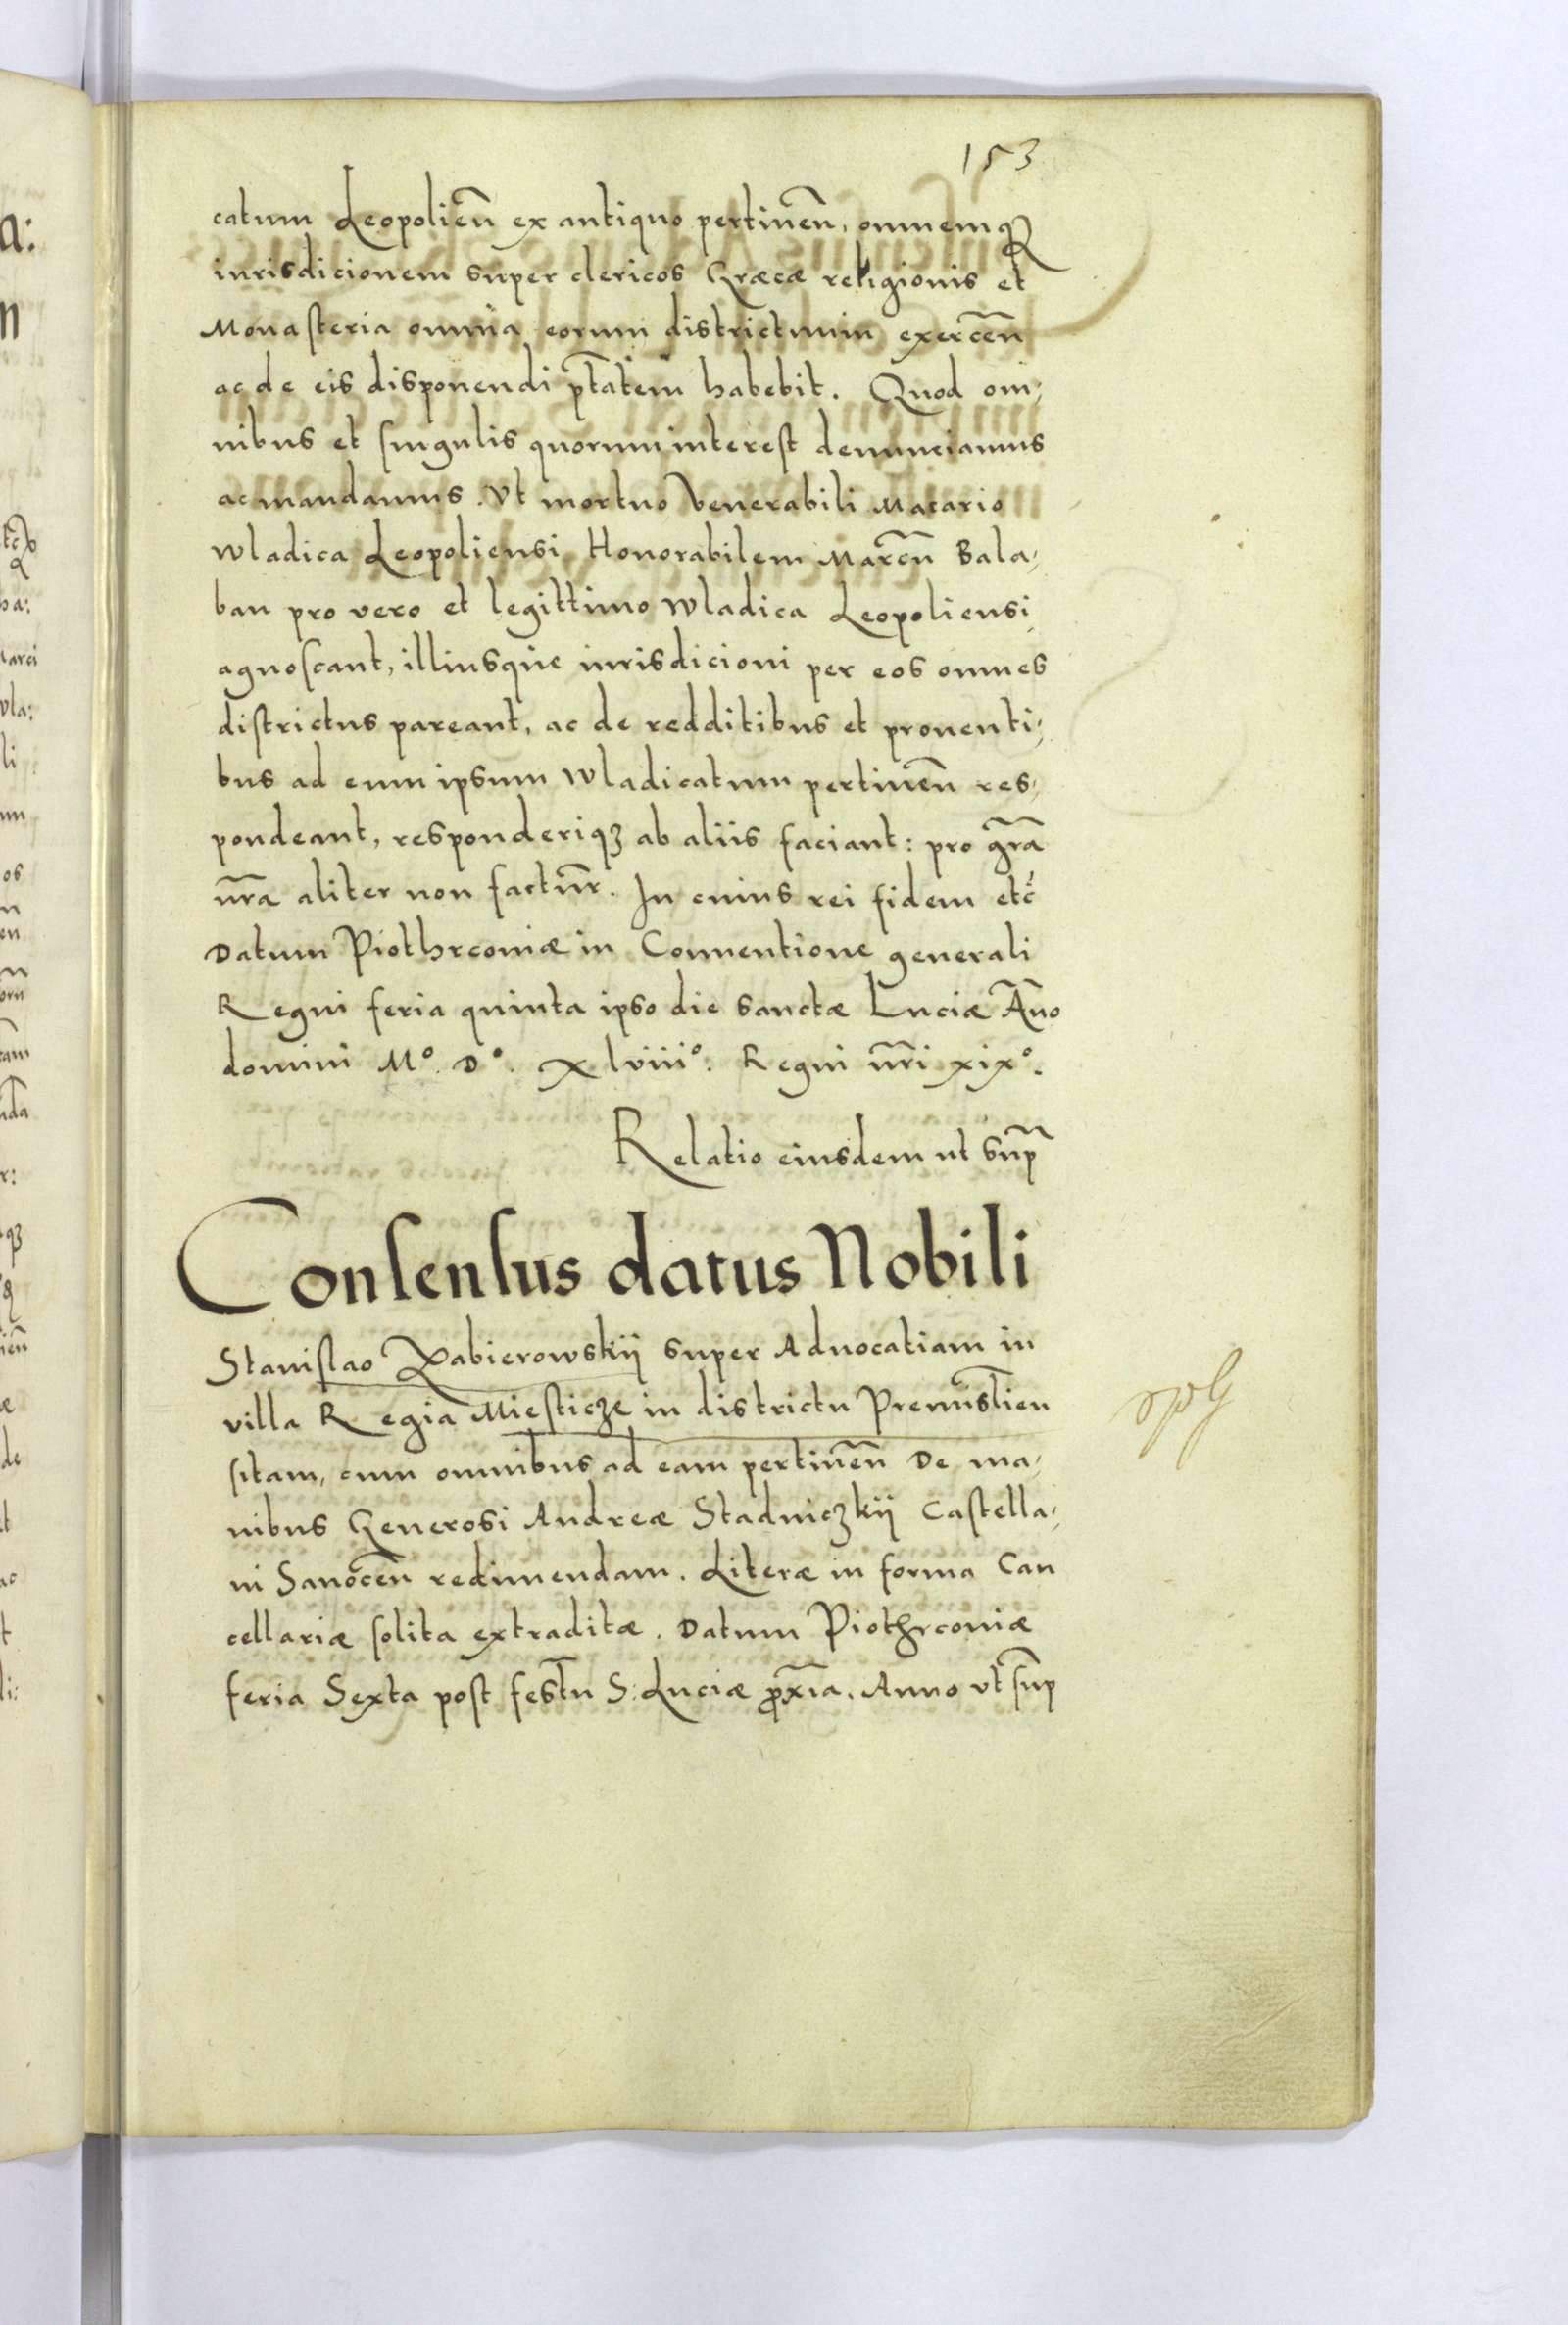 153
catum Leopolien̄ ex antiquo pertinen̄, omnemq₃
iurisdicionem super clericos Græcæ religionis et
Monasteria omnia eorum districtuum exercen̄
ac de eis disponendi ptātem habebit. Quod om-
nibus et singulis quorum interest denunciamus
ac mandamus. Ut mortuo Venerabili Macario
Wladica Leopoliensi Honorabilem Marcū Bala-
ban pro vero et legittimo Wladica Leopoliensi
agnoscant, illiusque iurisdicioni per eos omnes
districtus pareant, ac de redditibus et prouenti-
bus ad eum ipsum Wladicatum pertinen̄ res-
pondeant, responderiq₃ ab aliis faciant: pro gr̄a
nr̄a aliter non factur̄. In cuius rei fidem etc̄
Datum Piothrcouiæ in Conuentione generali
Regni feria quinta ipso die sanctæ Luciæ An̄o
domini M°. D°. Xlviii°. Regni nr̄i xix°.
Relatio eiusdem ut sup̄
Consensus datus Nobili
Stanislao Zabierowskij super Aduocatiam in
villa Regia Miesticze in districtu Premislien̄
sitam, cum omnibus ad eam pertinen̄ De ma-
nibus Generosi Andreæ Stadniczkij Castella-
ni Sanocen̄ redimendam. Literæ in forma Can
cellariæ solita extraditæ. Datum Piothrcouiæ
feria Sexta post festū S: Luciæ prox̄ia. Anno vt sup̄